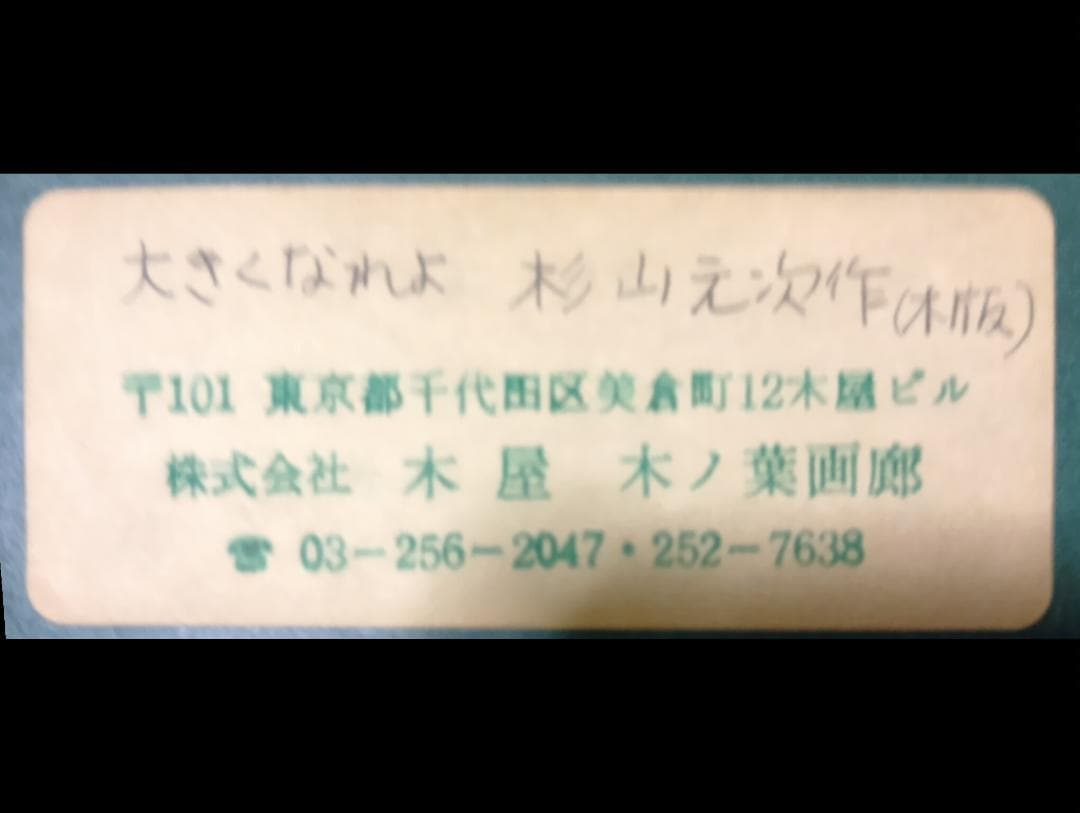 大きくなれよ 杉山元次作(木版)
〒101 東京都千代田区美倉町12木屋ビル
株式会社 木屋 木ノ葉画廊
☎ 03-256-2047・252-7638